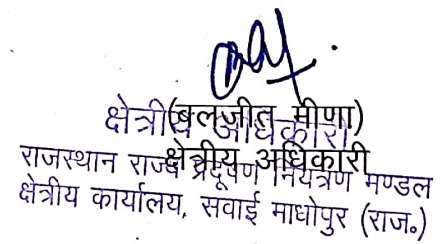 (बलजीत मीणा)
क्षेत्रीय अधिकारी
क्षेत्रीय अधिकारी
राजस्थान राज्य प्रदूषण नियंत्रण मण्डल
क्षेत्रीय कार्यालय, सवाई माधोपुर (राज०)